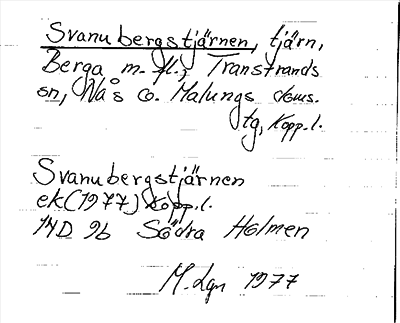 Svanubergstjärnen, tjärn,
Berga m. fl., Transtrands
sn, Nås o. Malungs doms.
tg, Kopp. l.
Svanubergstjärnen
ek (1977) Kopp. l.
14D 9b Södra Holmen
M. Lgn 1977